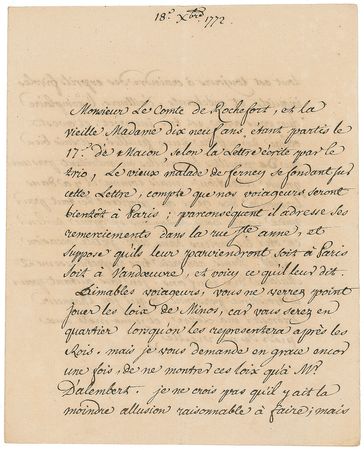 18e. Xbre 1772
Monsieur Le Comte de Rochefort, et la
vieille Madame dix neuf ans, étant partis le
17e. de Macon, selon la Lettre écrite par le
trio, Le vieux malade de ferney se fondant sur
cette Lettre, compte que nos voiageurs seront
bientôt à Paris; parconséquent il adresse ses
remerciements dans la rue Ste anne, et
suppose qu'ils leur parviendront soit à Paris
soit à Vandœuvre, et voicy ce qu'il leur dit.
Aimables voiageurs, vous ne verrez point
jouer les loix de Minos, car vous serez en
quartier lorsqu'on les représentera après les
Rois. mais je vous demande en grace encor
une fois, de ne montrer ces loix qu'à Mr.
D'alembert. je ne crois pas qu'il y ait la
moindre allusion raisonnable à faire; mais